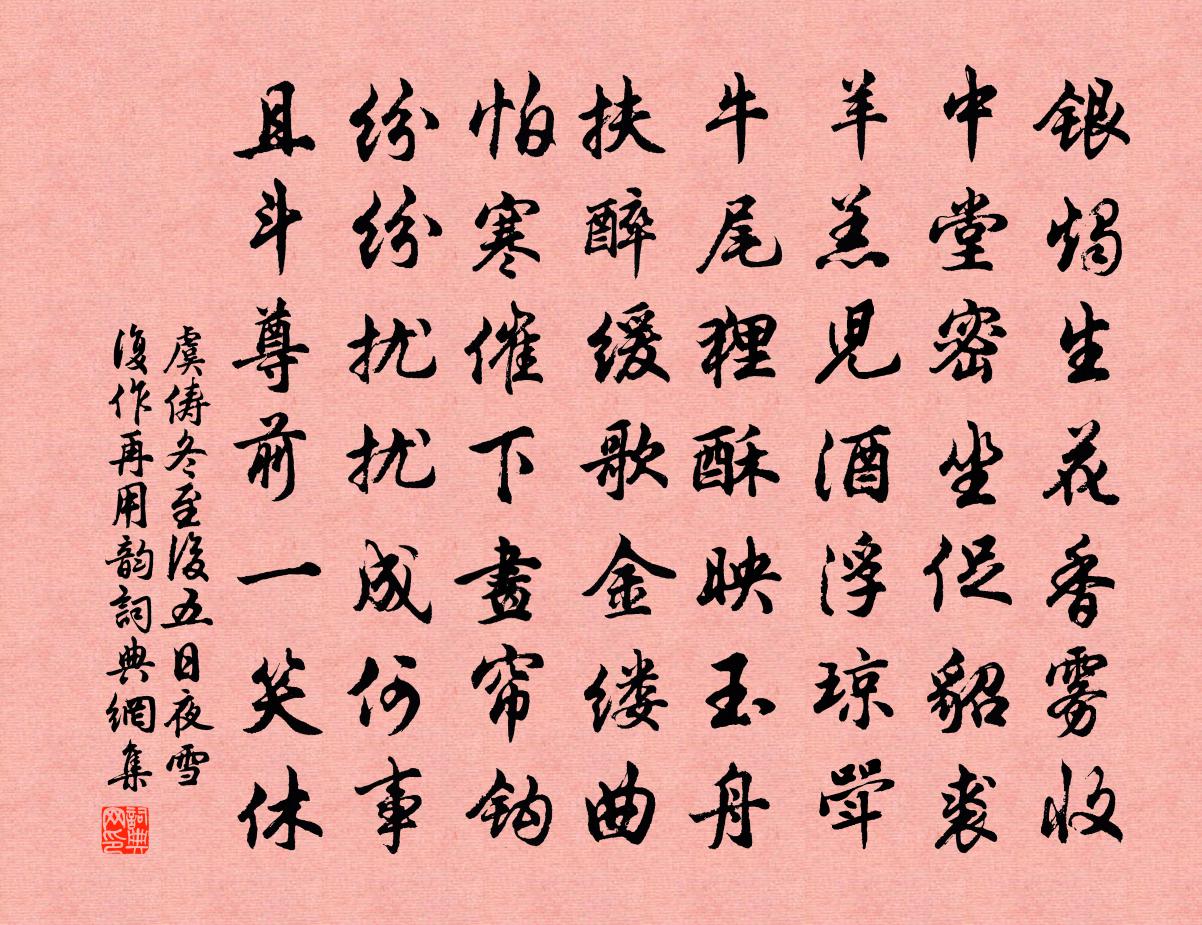 銀燭生花香雾收
中堂密坐促貂裘
羊羔兒酒浮琼斝
牛尾狸酥映玉舟
扶醉缓歌金缕曲
怕寒催下畫帘钩
纷纷扰扰成何事
且斗尊前一笑休
虞俦冬至後五日夜雪
復作再用韵詞典網集
詞典
网印